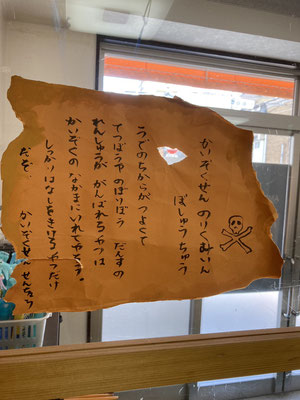 かいぞくせん のりくみいん
ぼしゅうちゅう
うでのちからがつよくて
てつぼうや のぼりぼう だんすの
れんしゅうが がんばれるやつは
かいぞくの なかまにいれてやろう。
しっかりはなしをきけるやつだけ
だぞ かいぞくせん せんちょう